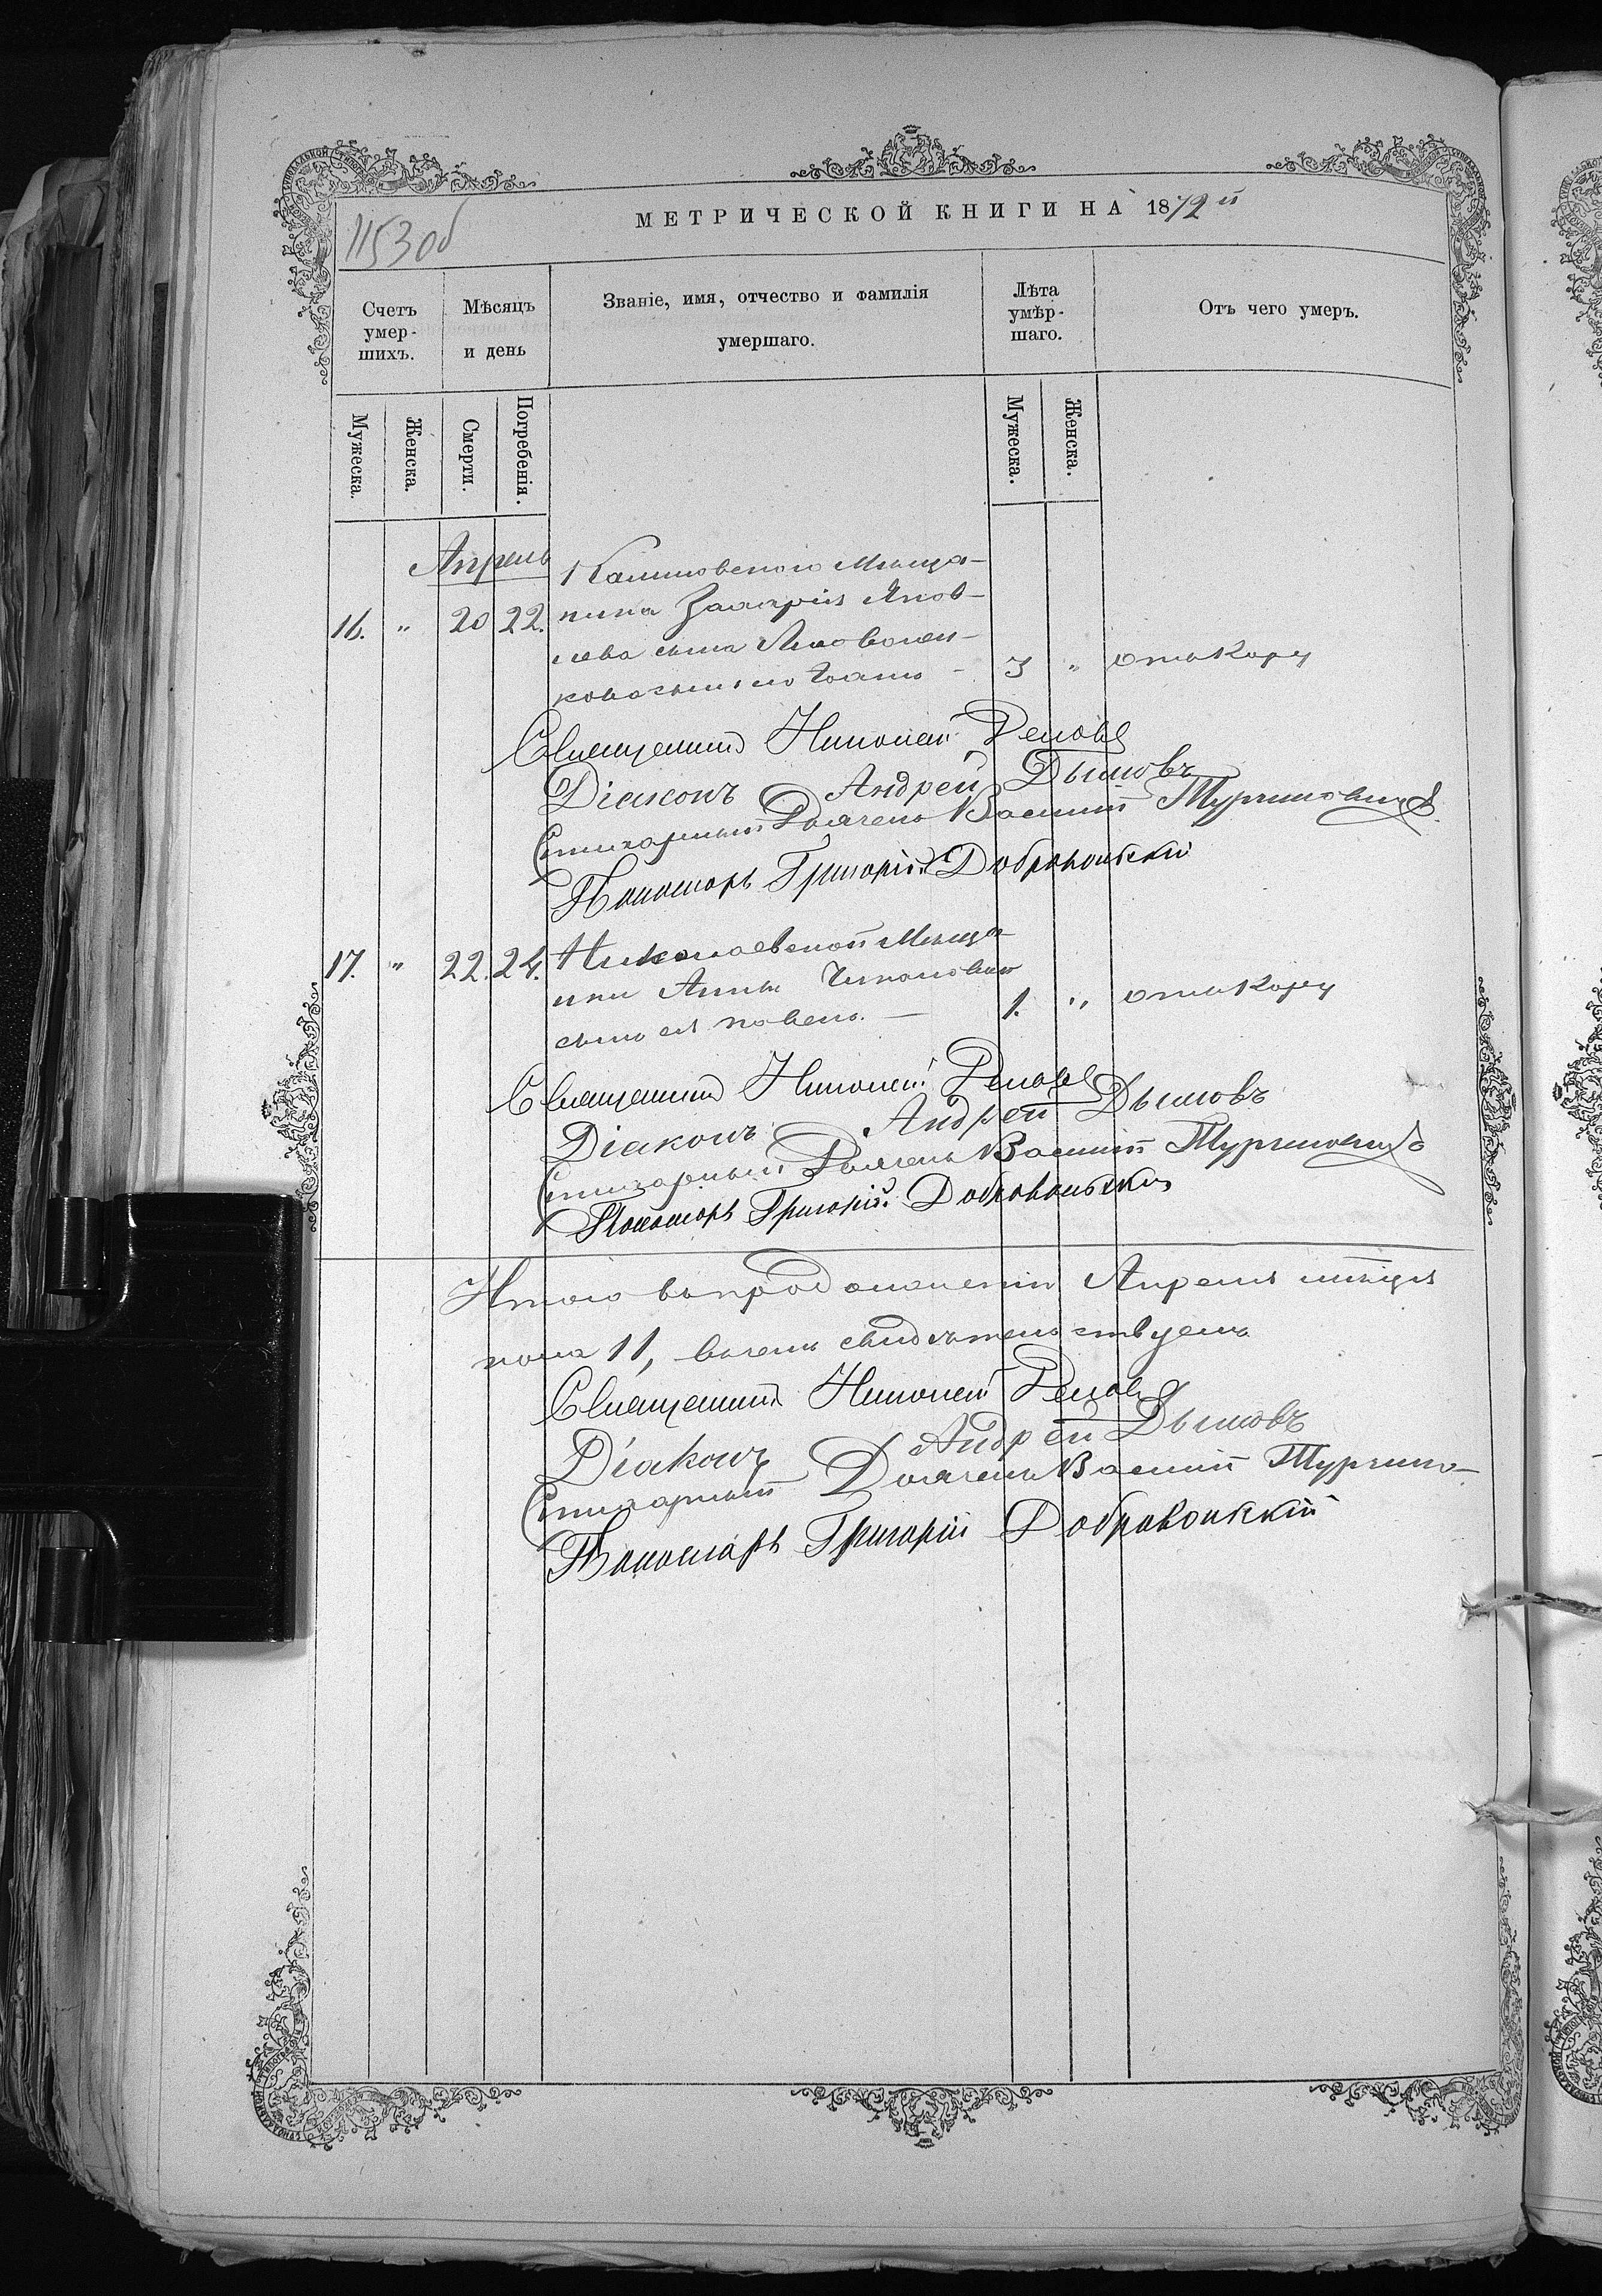 1153 об
МЕТРИЧЕСКОЙ КНИГИ НА 1872й
Счетъ умер-шихъ.
Мѣсяцъ и день
Званіе, имя, отчество и фамилія умершаго.
Лѣта умѣр-шаго.
Отъ чего умеръ.
Мужеска.
Женска.
Смерти.
Погребенія.
Мужеска.
Женска.
Апрель
мѣща-
16. " 20 22. нина Захарія Яков-
лева сына
3 " отъ кору
сынъ его Іоаннъ -
Священникъ Николай
Діаконъ Андрей Дымовъ
Стихарный Дьячекъ Василій
Пономарь Григорій Добровольскій
17. " 22. 24. Николаевской мѣщан-
ки Анны
сынъ ея Павелъ. — 1. " отъ кору
Священникъ Николай
Діаконъ Андрей Дымовъ
Стихарный Дьячекъ Василій
Пономарь Григорій Добровольскій
Итого въ продолженіи Апреля мѣсяца
пола 11, въ чемъ свидѣтельствуемъ
Священникъ Николай
Діаконъ Андрей Дымовъ
Стихарный Дьячекъ Василій
Пономарь Григорій Добровольскій